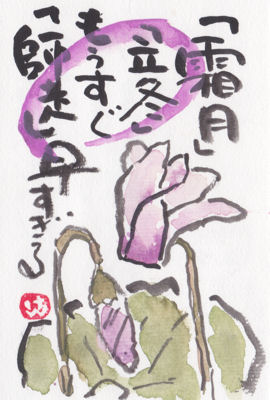 「霜月」
「立冬」
もうすぐ
「師走」早すぎる